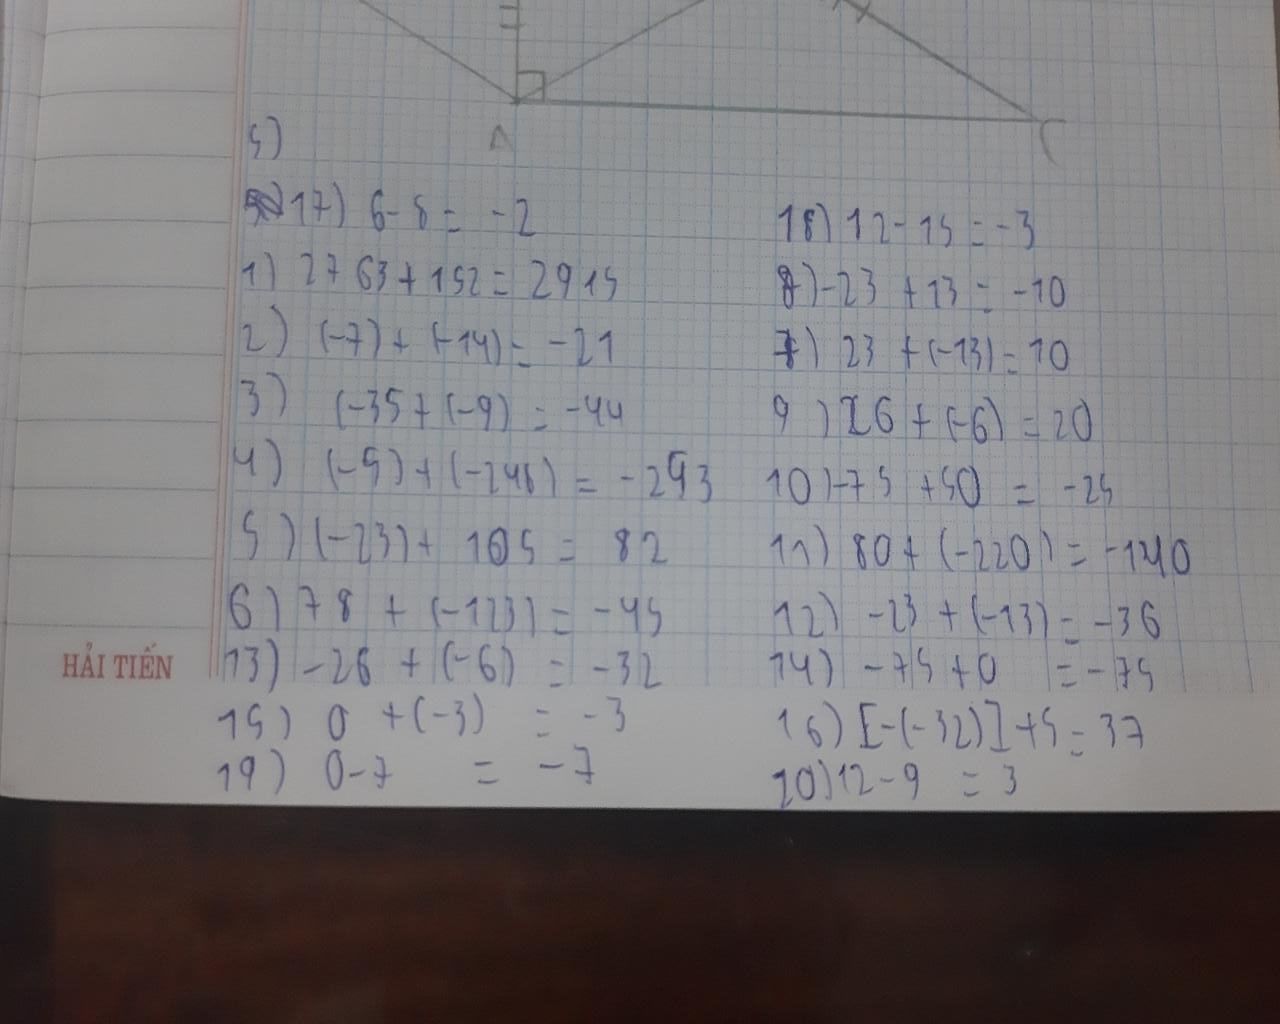 A
C
5)
17) 6-8= -2
18) 12-15=-3
1) 2763+152=2915
8)-23 +13= -10
2) (-7)+(-14)= -21
7) 23 +(-13)=10
3) (-35+(-9) = -44
9) 26 +(-6) =20
4) (-5)+(-248) = -253
10)-75 +50 = -25
5) (-23)+ 105 = 82
11) 80+(-220) = -140
6) 78 +(-123)= -45
12) -23 +(-13)= -36
13) -26 +(-6) = -32
14) -75+0 =-75
HẢI TIẾN
15) 0 +(-3) = -3
16) [-(-32)]+5=37
19) 0-7 = -7
20)12-9 =3